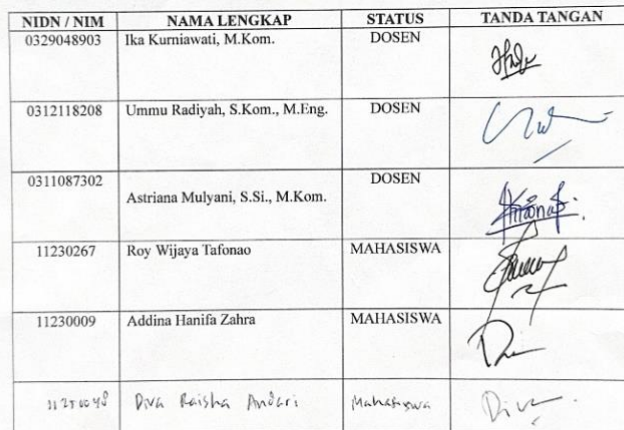 NIDN / NIM NAMA LENGKAP STATUS TANDA TANGAN
0329048903 Ika Kurniawati, M.Kom. DOSEN
0312118208 Ummu Radiyah, S.Kom., M.Eng. DOSEN
0311087302 Astriana Mulyani, S.Si., M.Kom. DOSEN
11230267 Roy Wijaya Tafonao MAHASISWA
11230009 Addina Hanifa Zahra MAHASISWA
Diva Raisha Andari Mahasiswa Diva